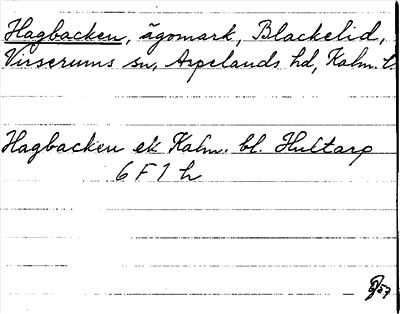 Hagbacken, ägomark, Blackelid,
Virserums sn, Aspelands hd, Kalm. l.
Hagbacken ek Kalm. bl. Hultarp
6 F 1 h
57